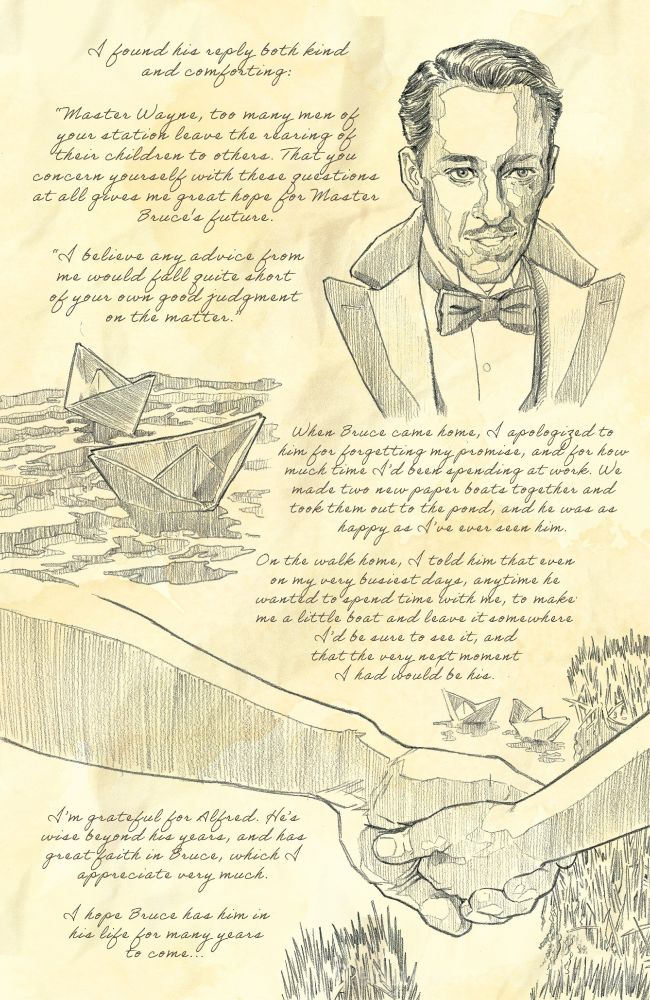 I found his reply both kind
and comforting:
"Master Wayne, too many men of
your station leave the rearing of
their children to others. That you
concern yourself with these questions
at all gives me great hope for Master
Bruce's future.
"I believe any advice from
me would fall quite short
of your own good judgment
on the matter."
When Bruce came home, I apologized to
him for forgetting my promise, and for how
much time I'd been spending at work. We
made two new paper boats together and
took them out to the pond, and he was as
happy as I've ever seen him.
On the walk home, I told him that even
on my very busiest days, anytime he
wanted to spend time with me, to make
me a little boat and leave it somewhere
I'd be sure to see it, and
that the very next moment
I had would be his.
I'm grateful for Alfred. He's
wise beyond his years, and has
great faith in Bruce, which I
appreciate very much.
I hope Bruce has him in
his life for many years
to come...